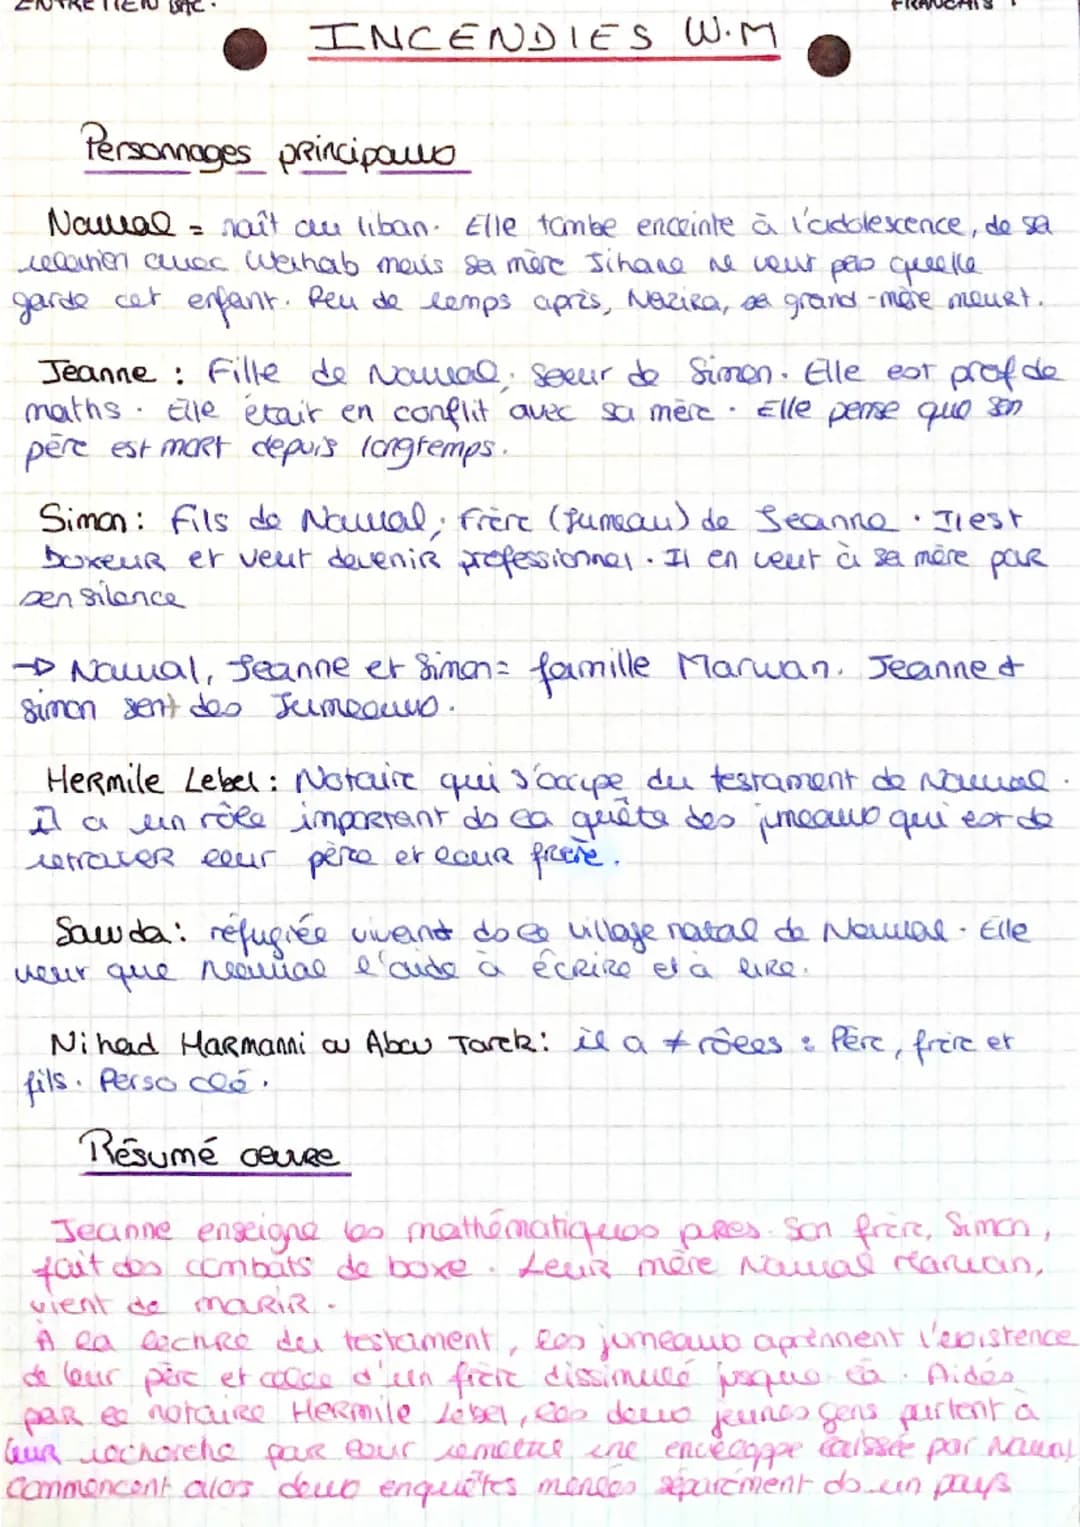 ENTRETIEN BAC.
FRANCAIS
INCENDIES W.M
Personnages principaux
Nawal = naît au liban. Elle tombe enceinte à l'adolescence, de sa
relation avec Wahab mais sa mère Jihane ne veut pas quelle
garde cet enfant. Peu de temps après, Nazira, sa grand-mère meurt.
Jeanne : Fille de Nawal; soeur de Simon. Elle est prof de
maths. Elle était en conflit avec sa mère. Elle pense que son
père est mort depuis longtemps.
Simon : Fils de Nawal; frère (jumeau) de Jeanne. Il est
boxeur et veut devenir professionnel. Il en veut à sa mère par
son silence
→ Nawal, Jeanne et Simon = famille Marwan. Jeanne et
Simon sont des Jumeaux.
Hermile Lebel : Notaire qui s'occupe du testament de Nawal.
Il a un rôle important ds la quête des jumeaux qui est de
retrouver leur père et leur frère.
Sawda : réfugiée vivant ds le village natal de Nawal. Elle
veut que Nawal l'aide à écrire et à lire.
Nihad Harmanni ou Abou Tarek : il a ≠ rôles : Père, frère et
fils. Perso clé.
Résumé oeuvre
Jeanne enseigne les mathématiques pures. Son frère, Simon,
fait des combats de boxe. Leur mère Nawal Marwan,
vient de mourir.
À la lecture du testament, les jumeaux aprennent l'existence
de leur père et celle d'un frère dissimulé jusque là. Aidés
par le notaire Hermile Lebel, les deux jeunes gens partent à
leur recherche par pour remettre une enveloppe laissée par Nawal
Commencent alors deux enquêtes menées séparément ds un pays